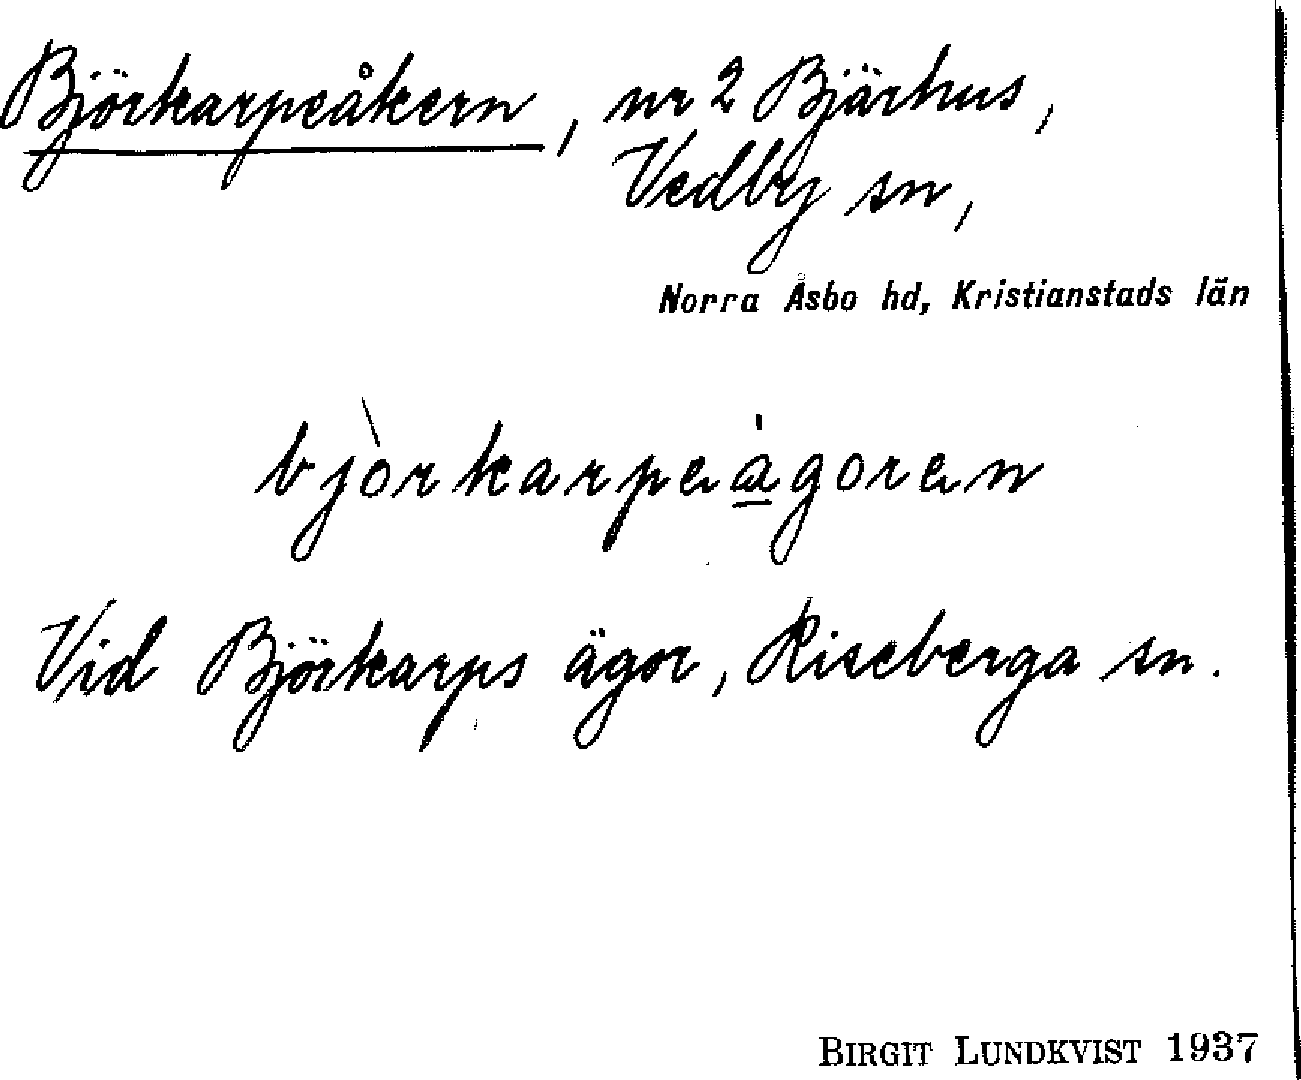 Björkarpeåkern, nr 2 Bjärhus,
Vedby sn,
Norra Åsbo hd, Kristianstads län
bjòrkarpeàgoren
Vid Björkarps ägor, Riseberga sn.
BIRGIT LUNDKVIST 1937